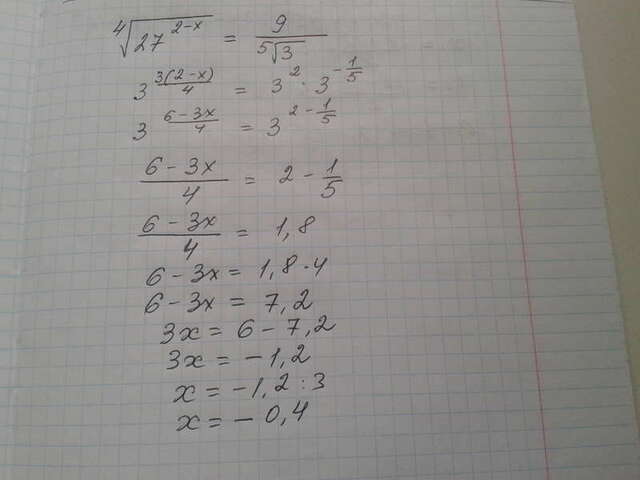 ⁴√(27^(2-x)) = 9/⁵√3
3^(3(2-x)/4) = 3^2 · 3^(-1/5)
3^((6-3x)/4) = 3^(2-1/5)
(6-3x)/4 = 2 - 1/5
(6-3x)/4 = 1,8
6-3x = 1,8·4
6-3x = 7,2
3x = 6-7,2
3x = -1,2
x = -1,2:3
x = -0,4